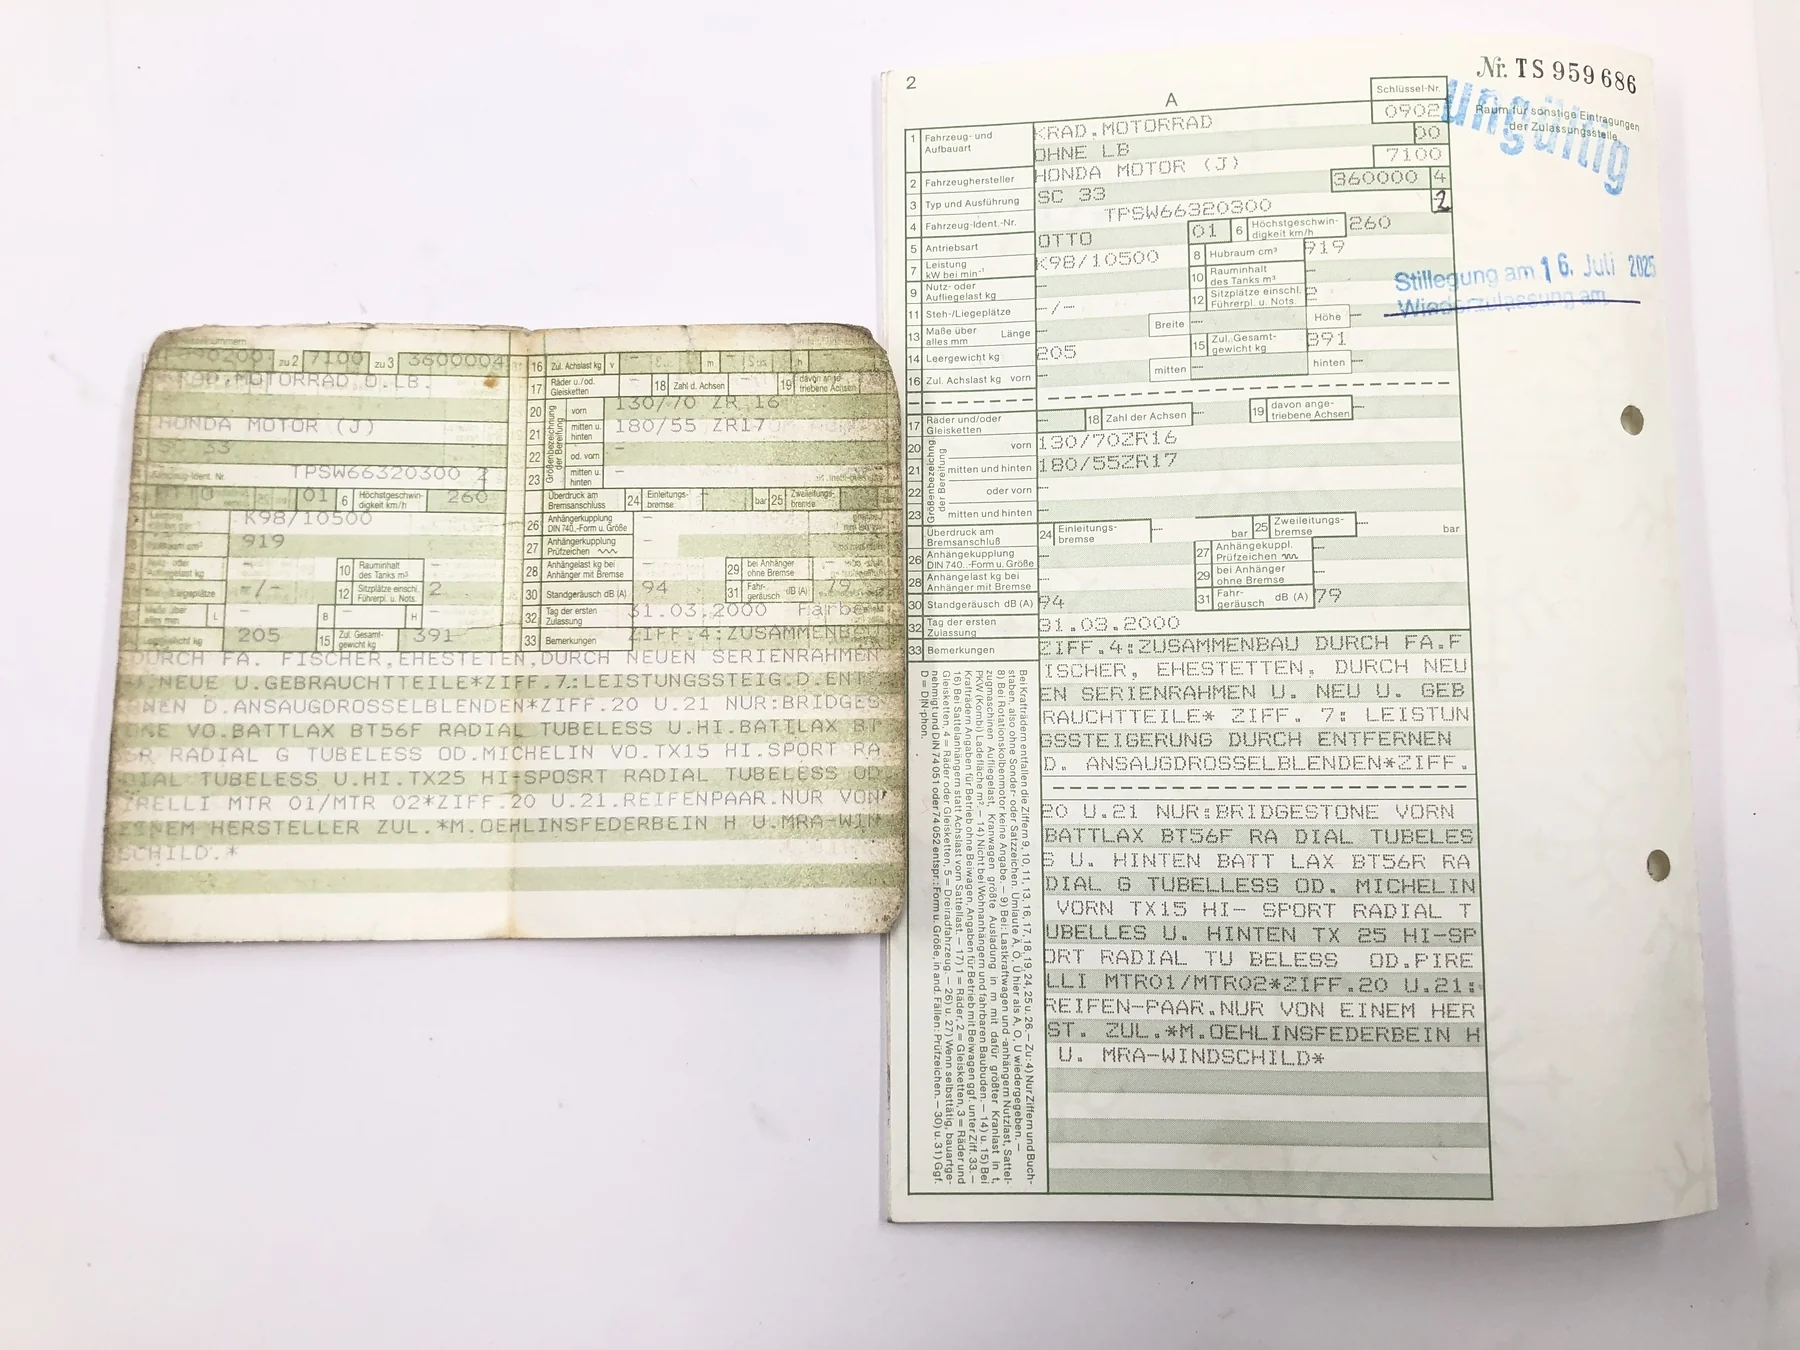 zu 2 7100 zu 3 3600004
KRAD.MOTORRAD O.LB.
HONDA MOTOR (J)
33
TPSW66320300 2
01 6 Höchstgeschwin-digkeit km/h 260
K98/10500
919
10 Rauminhalt des Tanks m³
-/- 12 Sitzplätze einschl. Führerpl. u. Nots. 2
L B H
205 15 Zul. Gesamt-gewicht kg 391
16 Zul. Achslast kg v m h
17 Räder u./od. Gleisketten - 18 Zahl d. Achsen - 19 davon ange-triebene Achsen
Größenbezeichnung der Bereifung
20 vorn 130/70 ZR 16
21 mitten u. hinten 180/55 ZR17
22 od. vorn -
23 mitten u. hinten -
Überdruck am Bremsanschluss 24 Einleitungs-bremse bar 25 Zweileitungs-bremse
26 Anhängerkupplung DIN 740..-Form u. Größe -
27 Anhängerkupplung Prüfzeichen -
28 Anhängelast kg bei Anhänger mit Bremse - 29 bei Anhänger ohne Bremse
30 Standgeräusch dB (A) 94 31 Fahr-geräusch dB (A) 79
32 Tag der ersten Zulassung 31.03.2000 Farbe
33 Bemerkungen ZIFF.4:ZUSAMMENBAU
DURCH FA. FISCHER,EHESTETEN,DURCH NEUEN SERIENRAHMEN
NEUE U.GEBRAUCHTTEILE*ZIFF.7.:LEISTUNGSSTEIG.D.ENT
NEN D.ANSAUGDROSSELBLENDEN*ZIFF.20 U.21 NUR:BRIDGES
ONE VO.BATTLAX BT56F RADIAL TUBELESS U.HI.BATTLAX BT
6R RADIAL G TUBELESS OD.MICHELIN VO.TX15 HI.SPORT RA
DIAL TUBELESS U.HI.TX25 HI-SPOSRT RADIAL TUBELESS OD
IRELLI MTR 01/MTR 02*ZIFF.20 U.21.REIFENPAAR.NUR VON
EINEM HERSTELLER ZUL.*M.OEHLINSFEDERBEIN H U.MRA-WIN
SCHILD.*
2
A
Nr. TS 959686
Schlüssel-Nr.
Raum für sonstige Eintragungen
der Zulassungsstelle
ungültig
1 Fahrzeug- und Aufbauart KRAD.MOTORRAD 0902
OHNE LB 00
2 Fahrzeughersteller HONDA MOTOR (J) 7100
3 Typ und Ausführung SC 33 360000 4
4 Fahrzeug-Ident.-Nr. TPSW66320300 2
5 Antriebsart OTTO 01 6 Höchstgeschwin-digkeit km/h 260
7 Leistung kW bei min⁻¹ K98/10500 8 Hubraum cm³ 919
9 Nutz- oder Aufliegelast kg -- 10 Rauminhalt des Tanks m³ --
11 Steh-/Liegeplätze -/-- 12 Sitzplätze einschl. Führerpl. u. Nots. 2
13 Maße über alles mm Länge -- Breite -- Höhe --
14 Leergewicht kg 205 15 Zul. Gesamt-gewicht kg 391
16 Zul. Achslast kg vorn -- mitten -- hinten --
Stillegung am 16. Juli 2025
Wiederzulassung am
17 Räder und/oder Gleisketten -- 18 Zahl der Achsen -- 19 davon ange-triebene Achsen --
Größenbezeichnung der Bereifung
20 vorn 130/70ZR16
21 mitten und hinten 180/55ZR17
22 oder vorn --
23 mitten und hinten --
Überdruck am Bremsanschluß 24 Einleitungs-bremse -- bar 25 Zweileitungs-bremse -- bar
26 Anhängekupplung DIN 740..-Form u. Größe -- 27 Anhängekuppl. Prüfzeichen --
28 Anhängelast kg bei Anhänger mit Bremse -- 29 bei Anhänger ohne Bremse --
30 Standgeräusch dB (A) 94 31 Fahr-geräusch dB (A) 79
32 Tag der ersten Zulassung 31.03.2000
33 Bemerkungen ZIFF.4:ZUSAMMENBAU DURCH FA.F
ISCHER, EHESTETTEN, DURCH NEU
EN SERIENRAHMEN U. NEU U. GEB
RAUCHTTEILE* ZIFF. 7: LEISTUN
GSSTEIGERUNG DURCH ENTFERNEN
D. ANSAUGDROSSELBLENDEN*ZIFF.
20 U.21 NUR:BRIDGESTONE VORN
BATTLAX BT56F RA DIAL TUBELES
S U. HINTEN BATT LAX BT56R RA
DIAL G TUBELLESS OD. MICHELIN
VORN TX15 HI- SPORT RADIAL T
UBELLES U. HINTEN TX 25 HI-SP
ORT RADIAL TU BELESS OD.PIRE
LLI MTR01/MTR02*ZIFF.20 U.21:
REIFEN-PAAR.NUR VON EINEM HER
ST. ZUL.*M.OEHLINSFEDERBEIN H
U. MRA-WINDSCHILD*
Bei Krafträdern entfallen die Ziffern 9, 10, 11, 13, 16, 17, 18, 19, 24, 25 u. 26. – Zu: 4) Nur Ziffern und Buch-
staben, also ohne Sonder- oder Satzzeichen. Umlaute Ä, Ö, Ü hier als A, O, U wiedergegeben. –
8) Bei Rotationskolbenmotor keine Angabe. – 9) Bei: Lastkraftwagen und -anhängern Nutzlast, Sattel-
zugmaschinen Aufliegelast, Kranwagen größte Ausladung in m mit dafür größter Kranlast in t,
PKW (Kombi) Ladefläche m². – 14) Nicht bei Wohnanhängern und fahrbaren Baubuden. – 14) u. 15) Bei
Krafträdern Angaben für Betrieb ohne Beiwagen, Angaben für Betrieb mit Beiwagen ggf. unter Ziff. 33. –
16) Bei Sattelanhängern statt Achslast vorn Sattellast. – 17) 1 = Räder, 2 = Gleisketten, 3 = Räder und
Gleisketten, 4 = Räder oder Gleisketten, 5 = Dreiradfahrzeug. – 26) u. 27) Wenn selbsttätig, bauartge-
nehmigt und DIN 74 051 oder 74 052 entspr.: Form u. Größe, in and. Fällen: Prüfzeichen. – 30) u. 31) Ggf.
D = DIN-phon.